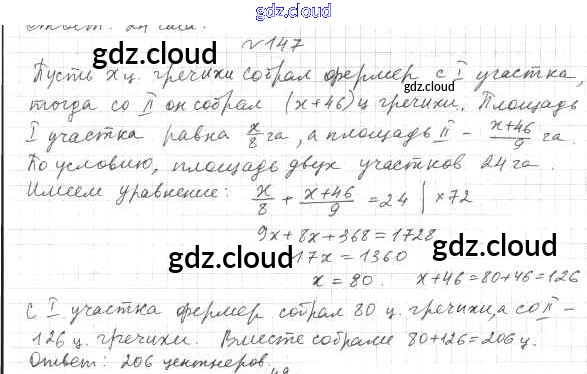 gdz.cloud
Ответ: 24
№147
Пусть x ц. гречихи собрал фермер с I участка,
тогда со II он собрал (x+46) ц гречихи. Площадь
I участка равна x/8 га, а площадь II - (x+46)/9 га.
По условию, площадь двух участков 24 га.
Имеем уравнение: x/8 + (x+46)/9 = 24 | ×72
9x+8x+368=1728
17x=1360
x=80. x+46=80+46=126
С I участка фермер собрал 80 ц. гречихи, а со II -
126 ц. гречихи. Вместе собрали 80+126=206 ц.
Ответ: 206 центнеров.
gdz.cloud
gdz.cloud
gdz.cloud
gdz.cloud
gdz.cloud
gdz.cloud
gdz.cloud